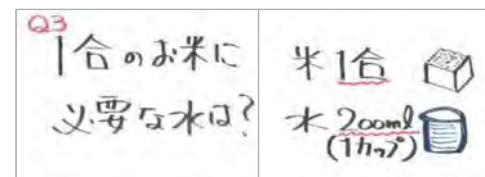 Q3
1合のお米に
必要な水は?
米1合
水200ml
(1カップ)